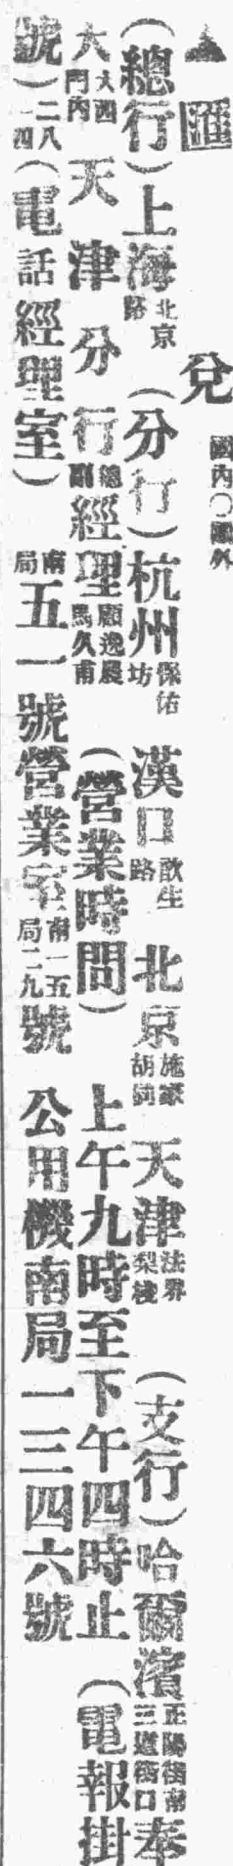 ▲匯兌 國內○國外
（總行）上海北京路（分行）杭州保佑坊 漢口歆生路 北京施家胡同 天津法界梨棧（支行）哈爾濱正陽街南三道街口奉
天大西門內 天津分行總副經理顧逸農馬久甫（營業時間）上午九時至下午四時止（電報掛
號）二八一四（電話經理室）南局五一號營業室南局一五二九號 公用機南局一三四六號